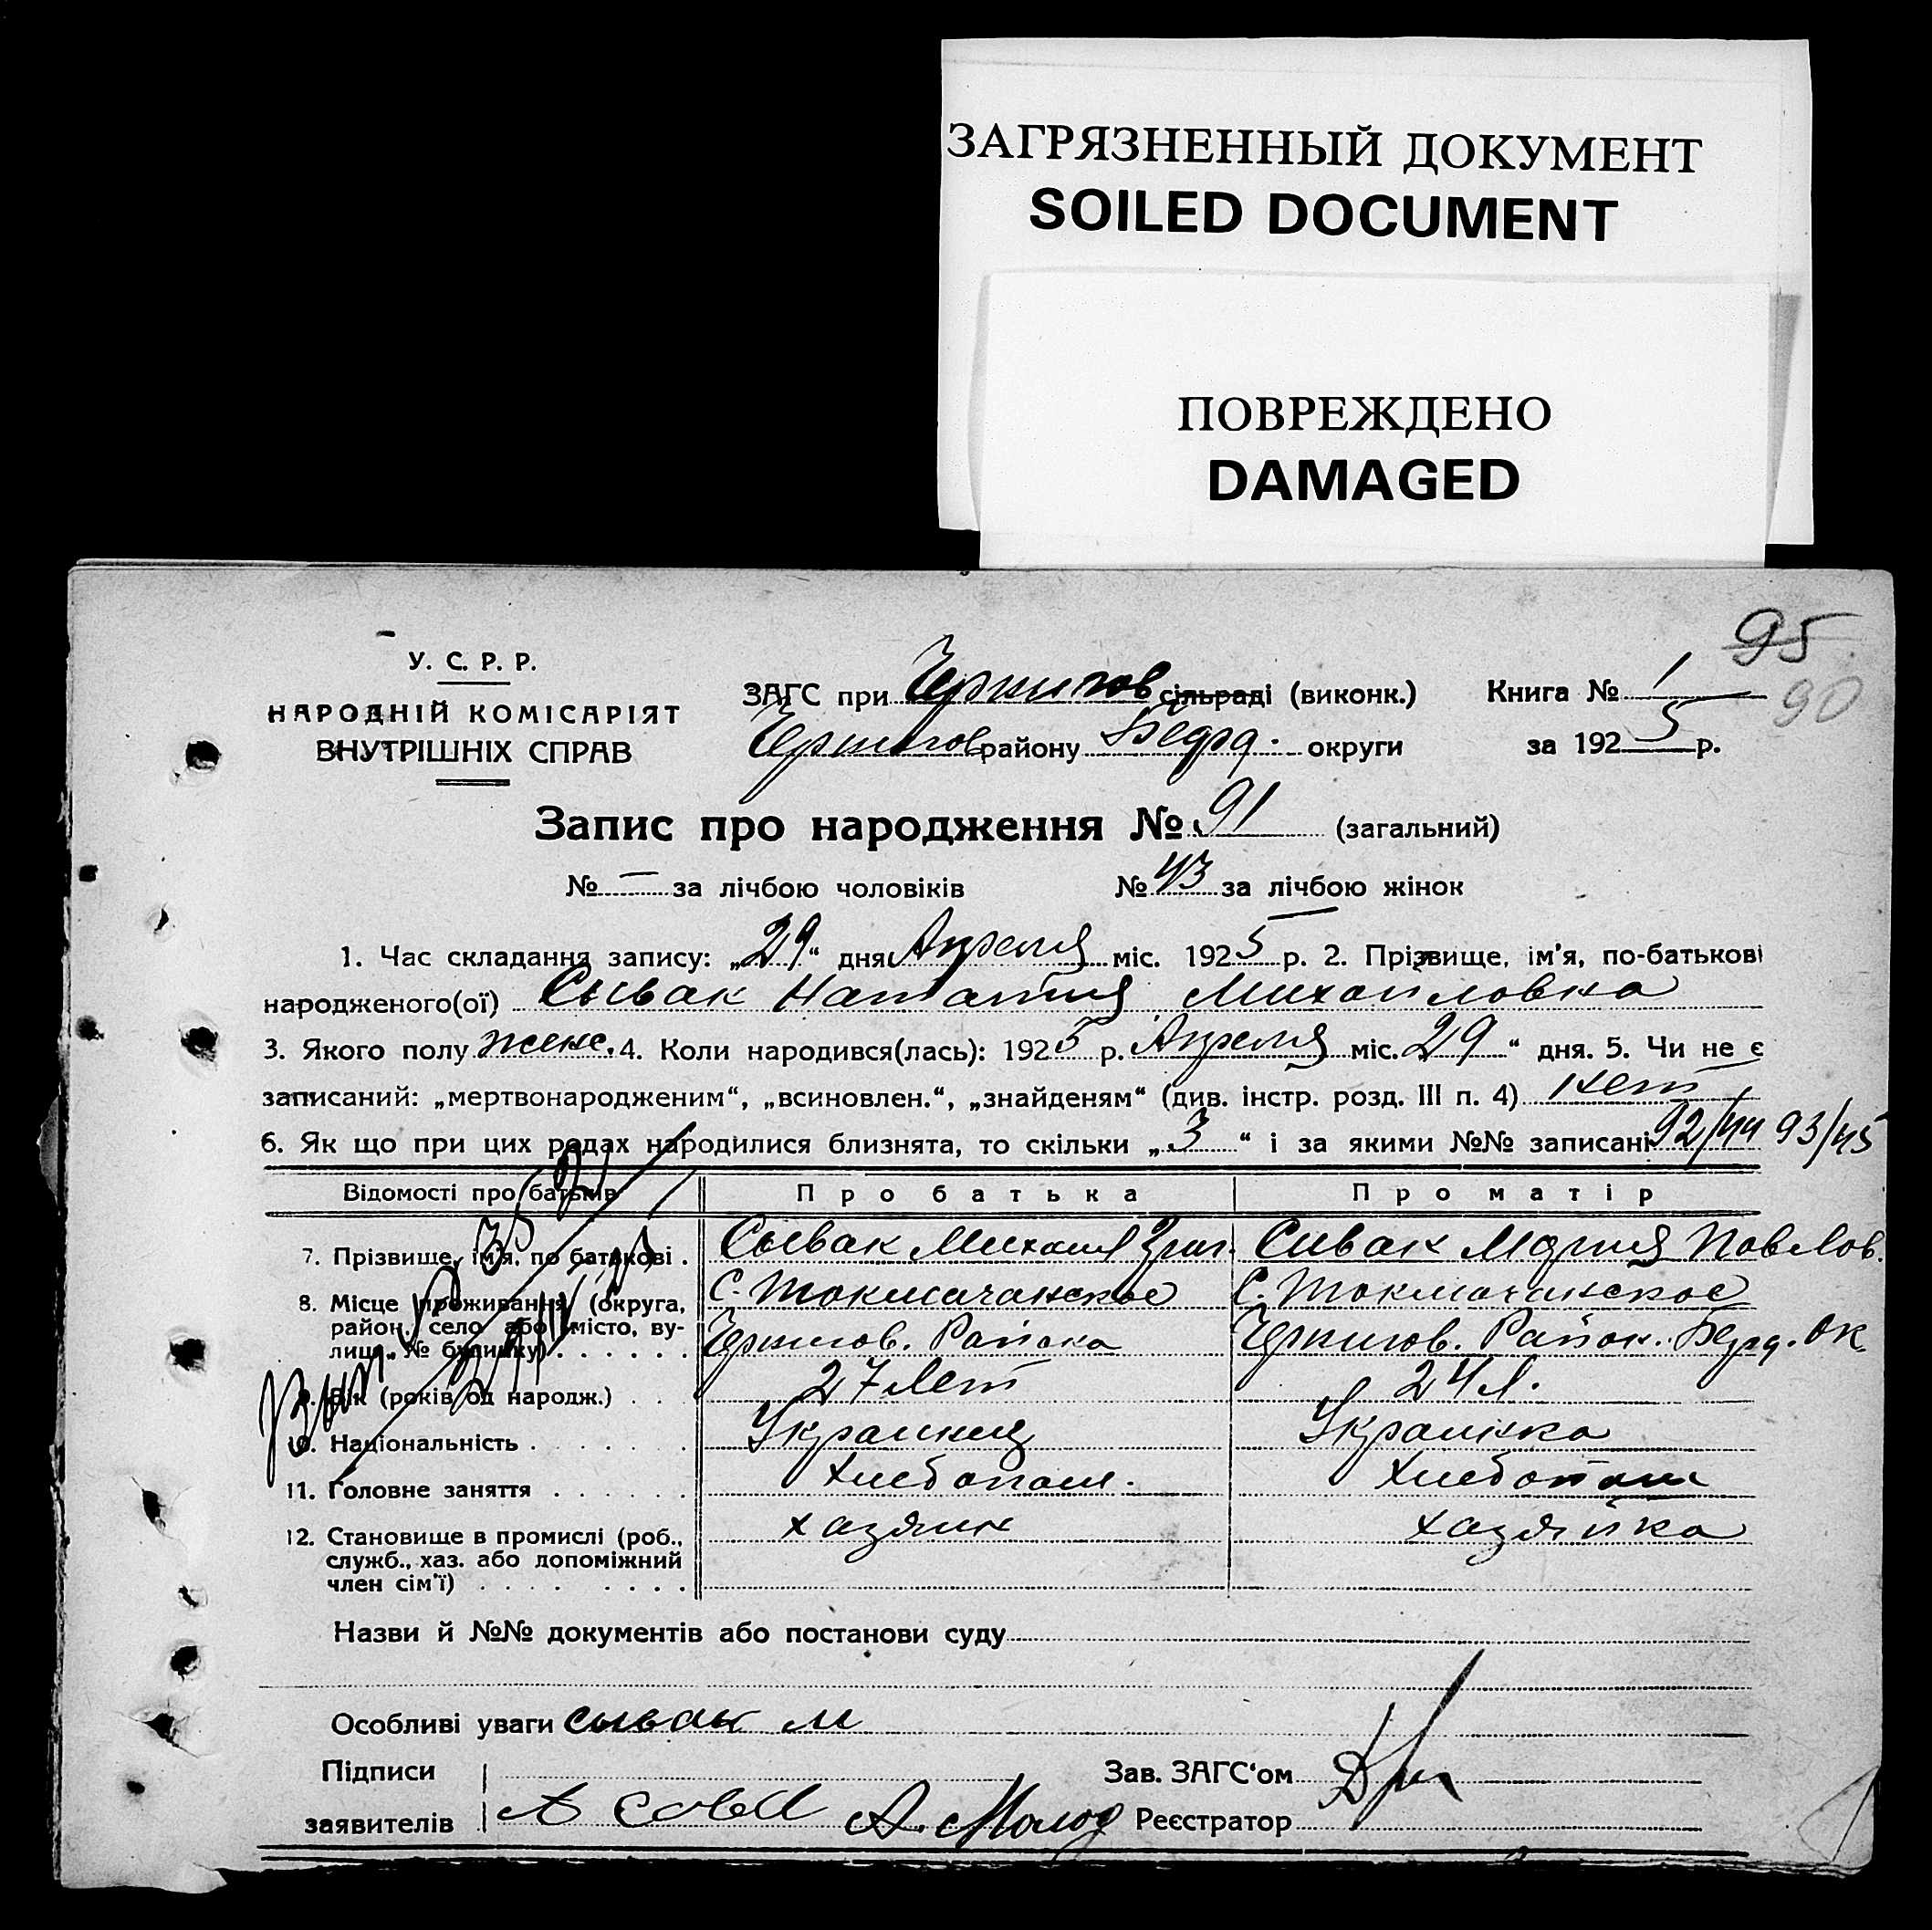 ЗАГРЯЗНЕННЫЙ ДОКУМЕНТ
SOILED DOCUMENT
ПОВРЕЖДЕНО
DAMAGED
95
90
У. С. Р. Р.
НАРОДНІЙ КОМІСАРІЯТ
ВНУТРІШНІХ СПРАВ
ЗАГС при Чернигов сільраді (виконк.) Книга № 1
Чернигов району Бердя. округи за 1925 р.
Запис про народження № 91 (загальний)
№ — за лічбою чоловіків № 43 за лічбою жінок
1. Час складання запису: „29“ дня Апреля міс. 1925 р. 2. Прізвище, ім'я, по-батькові
народженого(ої) Сывак Наталия Михайловна
3. Якого полу женс. 4. Коли народився(лась): 1925 р. Апреля міс. 29“ дня. 5. Чи не є
записаний: „мертвонародженим“, „всиновлен.“, „знайденям“ (див. інстр. розд. III п. 4) нет
6. Як що при цих родах народилися близнята, то скільки „3“ і за якими №№ записані 92/44 93/45
Відомості про батьків Про батька Про матір
7. Прізвище, ім'я, по батькові . Сывак Михаил Григ. Сивак Мария Павлов.
8. Місце проживання (округа, район, село або місто, вулиця, № будинку) . . . . . . С. Токмачанское Чернигов. Района С. Токмачанское Чернигов. Район. Бердя. Ок.
9. Вік (років од народж.) . . . 27 лет 24 л.
10. Національність . . . . . . Украинец Украинка
11. Головне заняття . . . . . . Хлебопаш. Хлебопаш
12. Становище в промислі (роб., служб., хаз. або допоміжний член сім'ї) . . . . . . . . хазяин хазяйка
Назви й №№ документів або постанови суду
Особливі уваги сывак м
Підписи Зав. ЗАГС'ом
заявителів Реєстратор